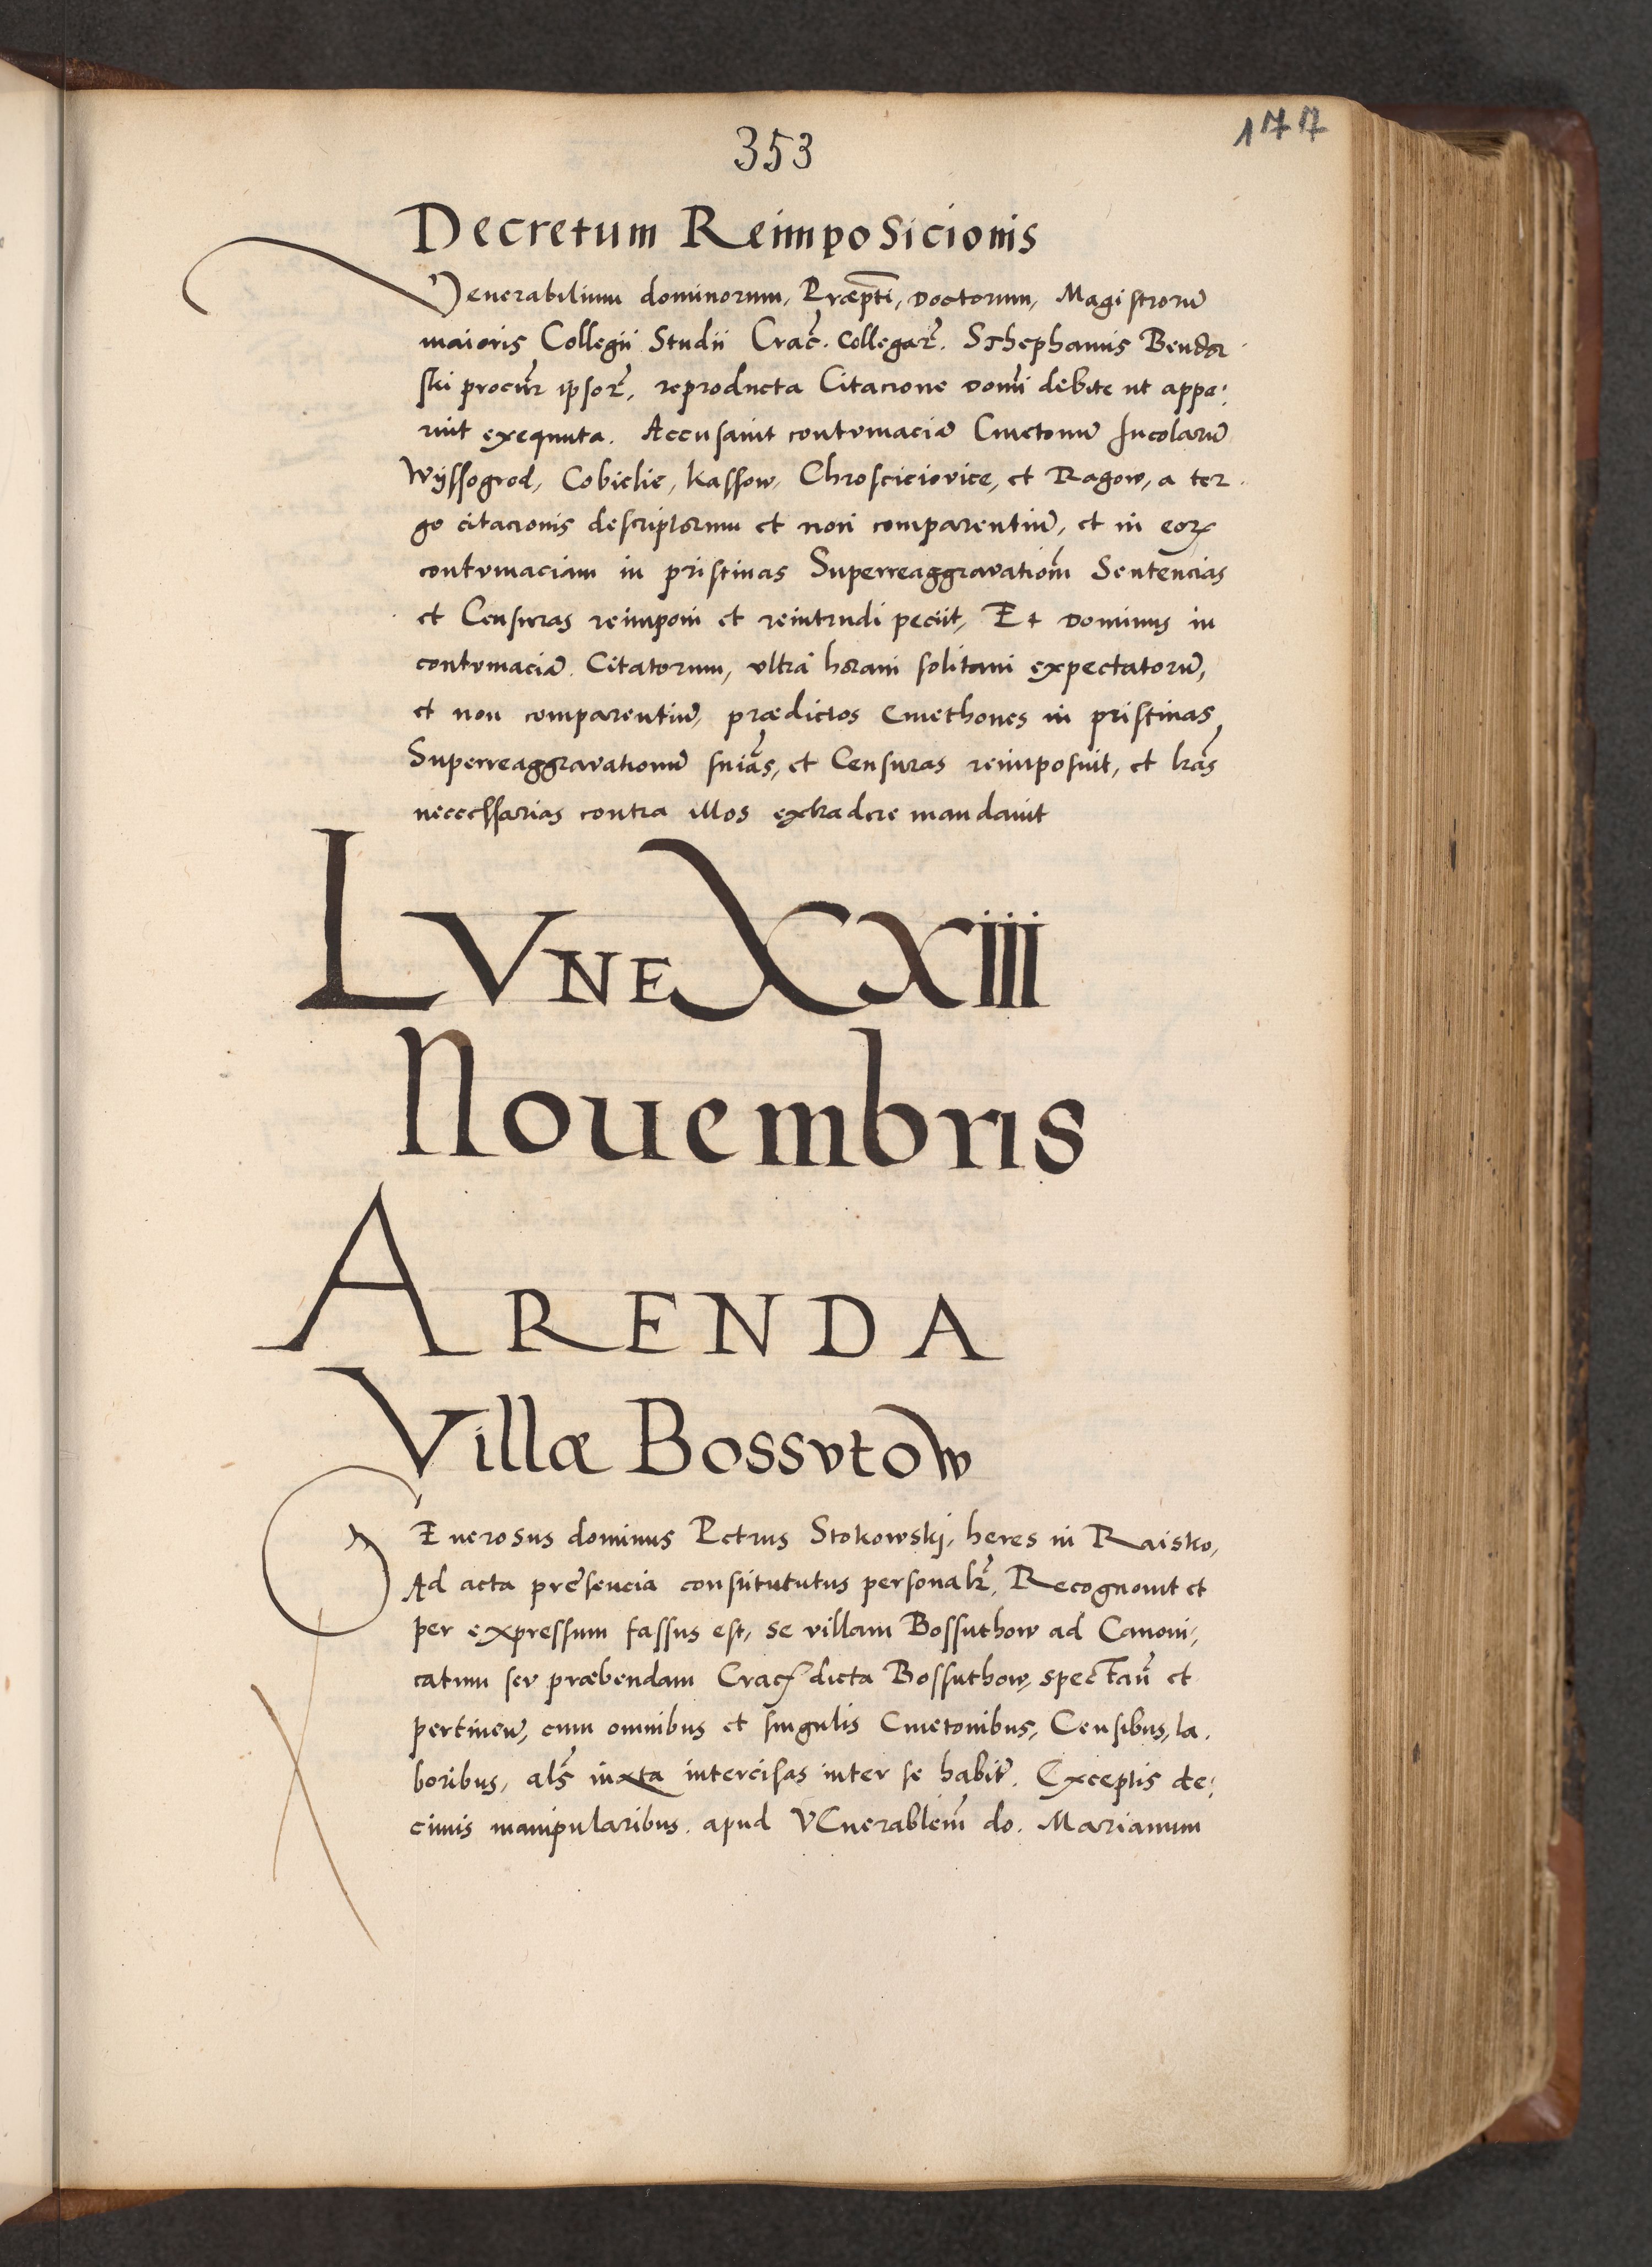 177
353
Decretum Reimposicionis
Venerabilium dominorum, Præpti, Doctorum, Magistrorū
maioris Collegii Studii Crac̃. Collegar̃. Sthephanus Bendor
ski procur̃ ipsor̃, reproducta Citacione Domi debite ut appa:
ruit exequuta. Accusauit contumaciā Cmetonum Incolarū
Wyssogrod, Cobielie, Kassow, Chrosciciovice, et Ragow, a ter
go citacionis descriptorum et non comparentiū, et in eorꝝ
contumaciam in pristinas Superreaggravationum Sentencias
et Censuras reimponi et reintrudi peciit, Et Dominus in
contumaciā Citatorum, vltra horam solitam expectatorū,
et non comparentiū, prædictos Cmethones in pristinas
Superreaggravationum sniãs, et Censuras reimposuit, et lrãs
nececssarias contra illos extradere mandauit
LVNE XXIII
Nouembris
ARENDA
Villæ Bossvtow
GEnerosus dominus Petrus Stokowskj, heres in Raisko,
Ad acta præsencia constitututus personalr̃, Recognouit et
per expressum fassus est, se villam Bossuthow ad Canoni,
catum sev præbendam Crac dicta Bossuthow, spectan̄ et
pertinen̄, cum omnibus et singulis Cmetonibus, Censibus, la.
boribus, als̃ iuxta intercisas inter se habit̃. Exceptis de:
cimis manipularibus. apud VEnerablem̃ do. Marianum